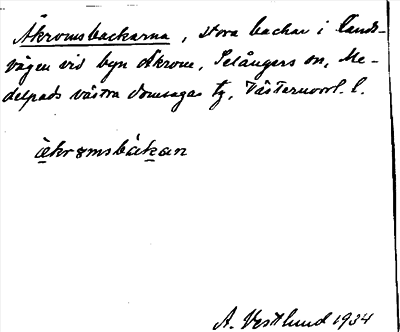 Åkromsbackarna, stora backar i lands-
vägen vid byn Åkrom, Selångers sn, Me-
delpads västra domsagas tg, Västernorrl. l.
åkromsbåkan
A. Vestlund 1934